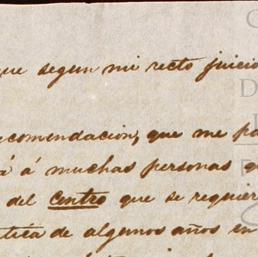 que segun mi recto juicio
comendacion, que me pa
á muchas personas q
del Centro que se requier
tica de algunos años en